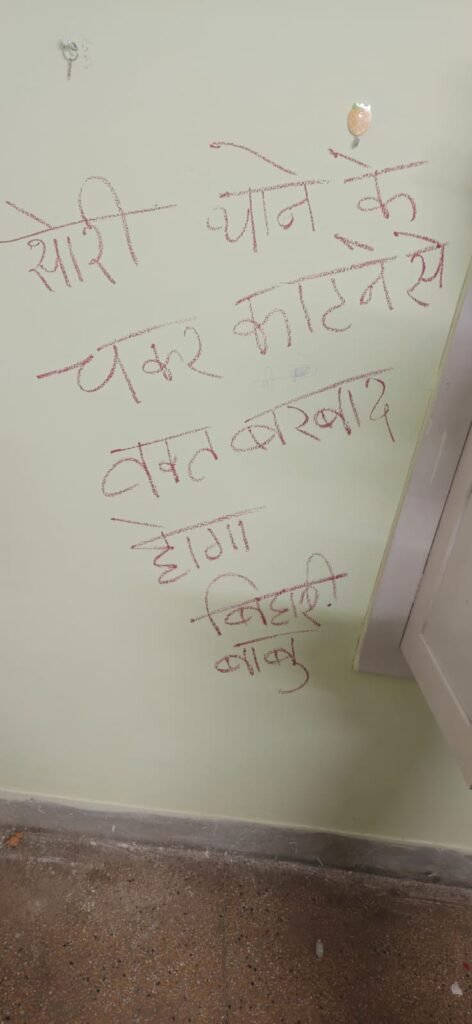 सोरी थाने के
चकर काटने से
वक्त बरबाद
होगा
बिहारी
बाबु